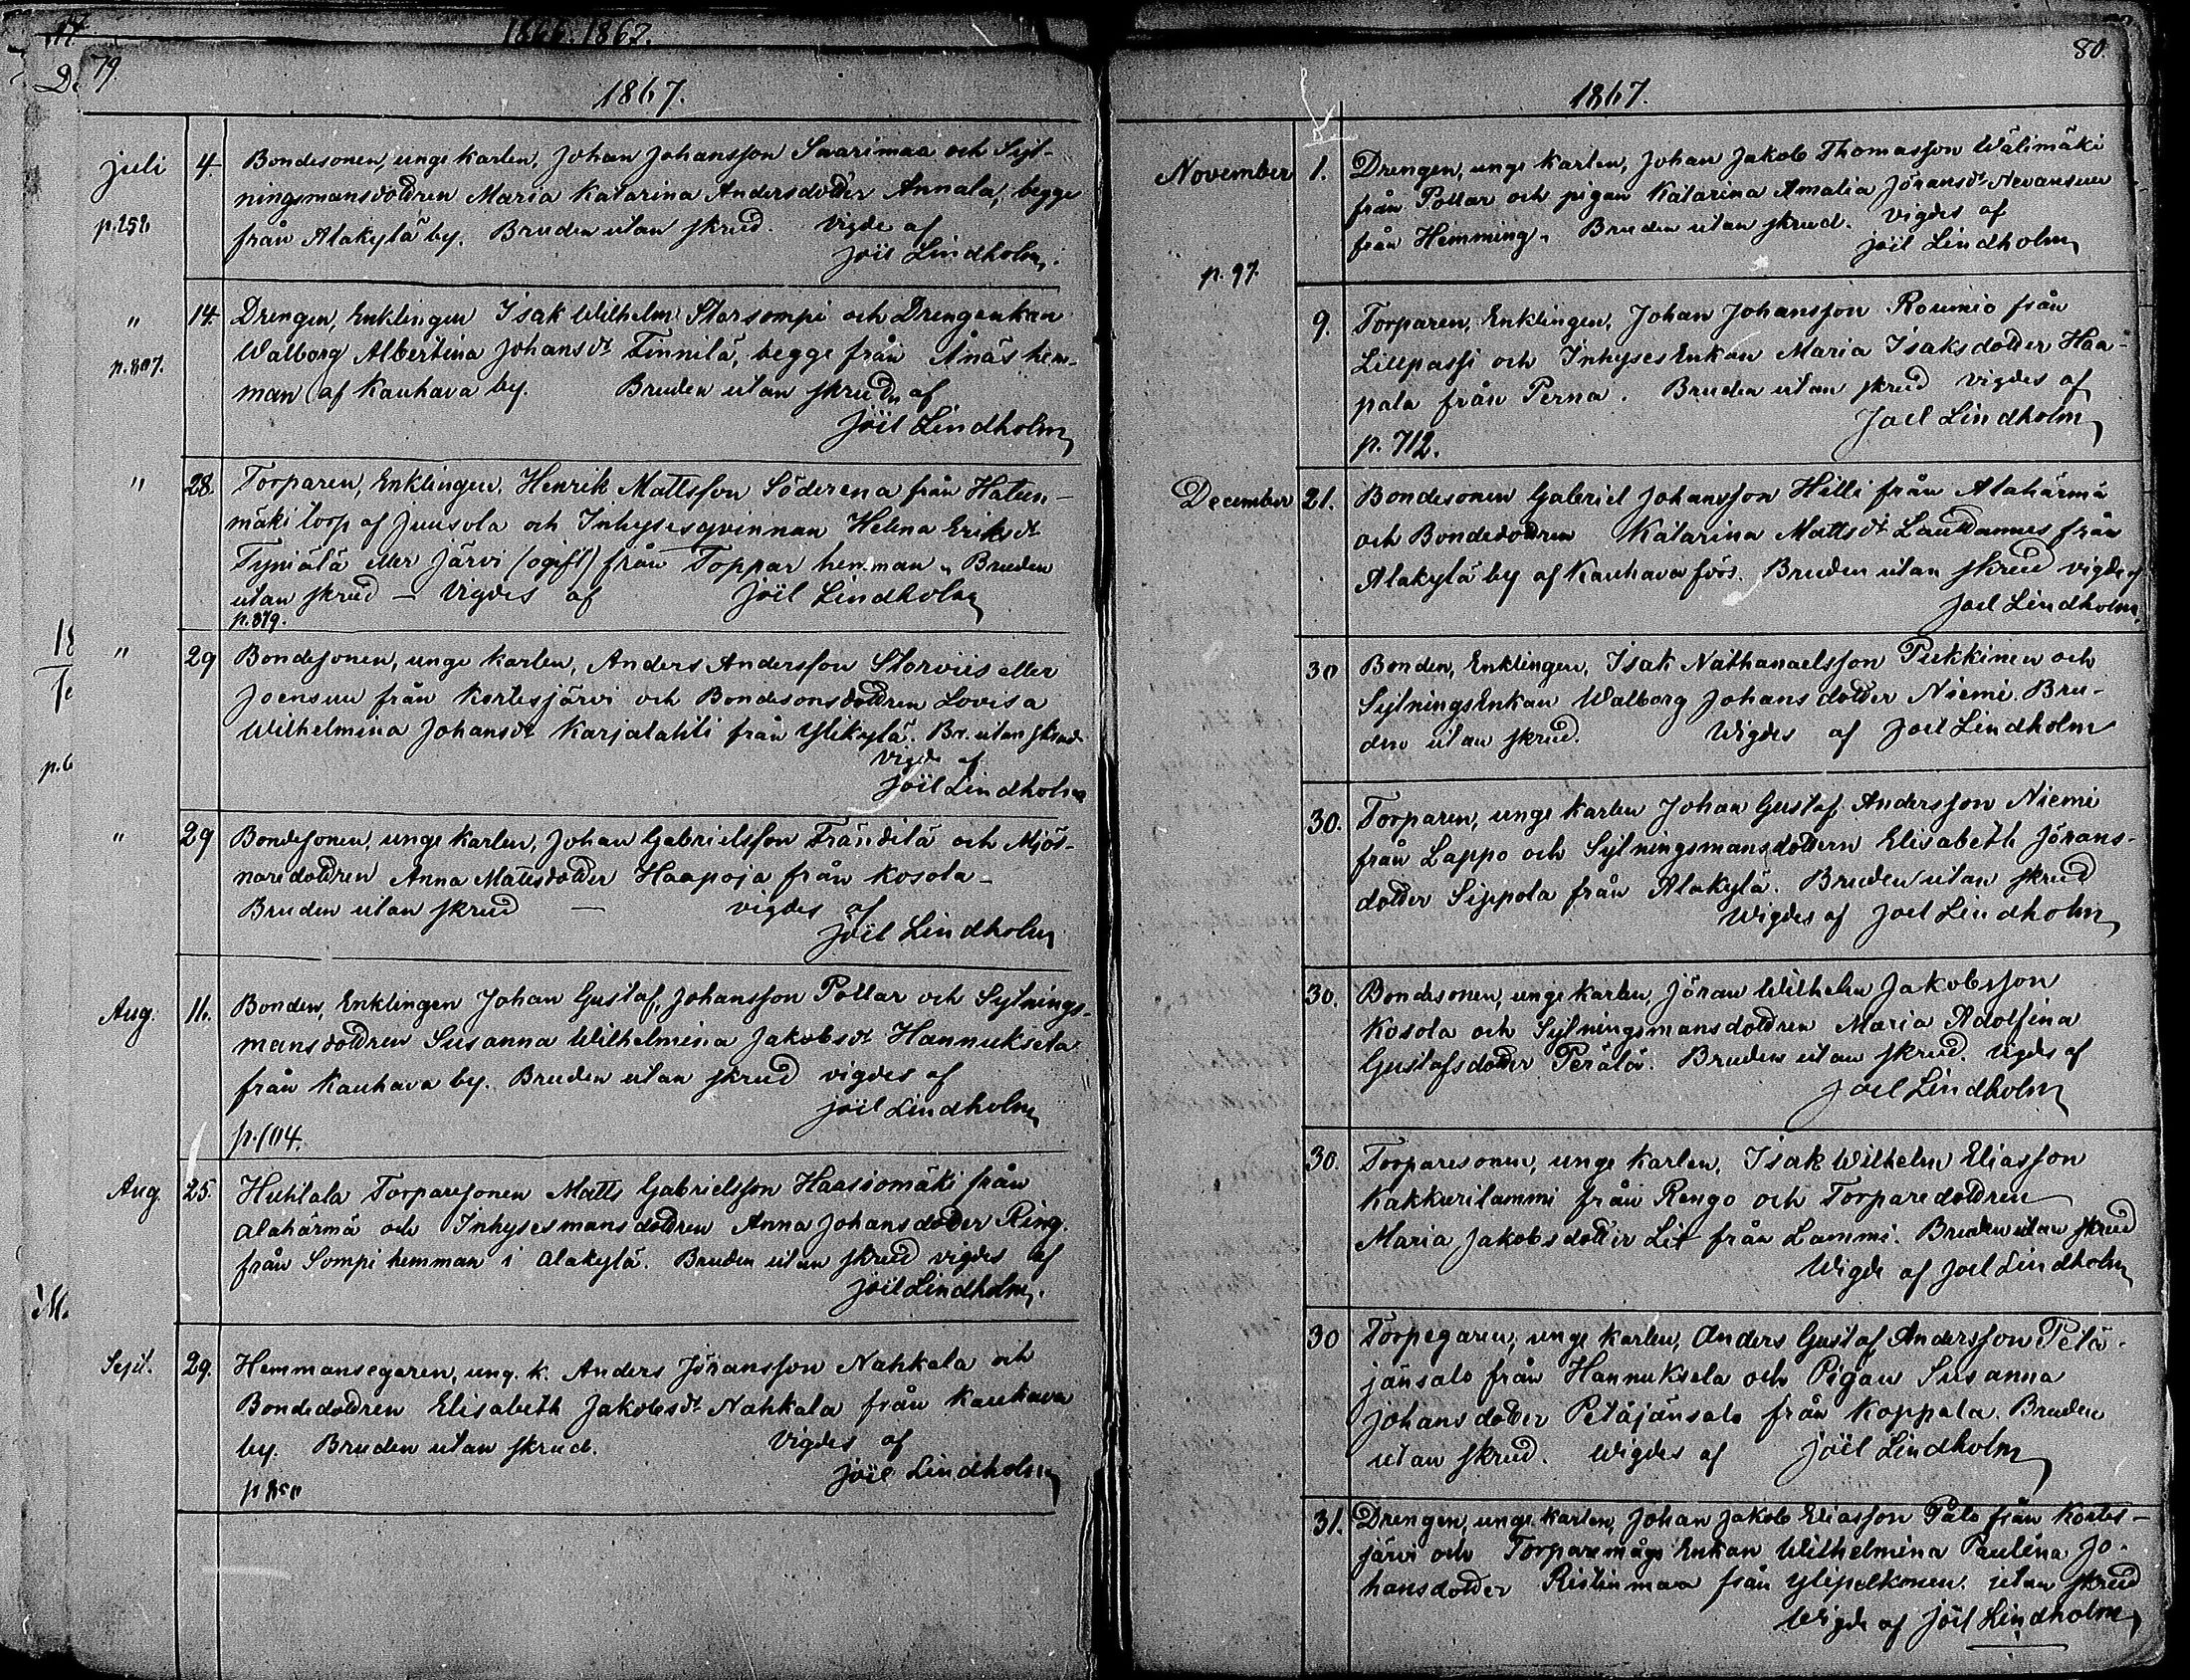 1866. 1867.
79.
1867.
juli 4. Bondesonen, unge karlen, Johan Johansson Saarimaa och Syt-
ningsmansdottren Maria Katarina Andersdotter Annala, begge
p. 258 från Alakylä by. Bruden utan skrud. Vigde af
Joël Lindholm.
" 14. Drengen, Enklingen Isak Wilhelm Storsompi och Drengenkan
Walborg Albertina Johansdr Finnilä, begge från Ånäs hem-
p. 807. man af Kauhava by. Bruden utan skrud af
Joël Lindholm
" 28. Torparen, Enklingen, Henrik Mattsson Söderena från Haten-
mäki torp af Juusola och Inhysesqvinnan Helena Eriksdr
Tyniälä eller Järvi (ogift) från Toppar hemman. Bruden
utan skrud – Vigdes af Joël Lindholm
p. 879.
" 29 Bondesonen, unge karlen, Anders Andersson Storviis eller
Joensuu från Kortesjärvi och Bondesonsdottren Lovisa
Wilhelmina Johansdr Karjalahti från Ylikylä. Br. utan skrud
Vigde af
Joël Lindholm
" 29 Bondesonen, unge karlen, Johan Gabrielsson Frändilä och Mjöl-
naredottren Anna Mattsdotter Haapoja från Kosola –
Bruden utan skrud — vigdes af
Joël Lindholm
Aug. 11. Bonden, Enklingen Johan Gustaf Johansson Pollar och Sytnings-
mansdottren Susanna Wilhelmina Jakobsdr Hannuksela
från Kauhava by. Bruden utan skrud vigdes af
Joël Lindholm
p. 104.
Aug. 25. Huhtala Torparesonen Matts Gabrielsson Haasiomäki från
Alahärmä och Inhysesmansdottren Anna Johansdotter Ring.
från Sompi hemman i Alakylä. Bruden utan skrud vigdes af
Joël Lindholm.
Sept. 29. Hemmansegaren, ung. k. Anders Jöransson Nahkala och
Bondedottren Elisabeth Jakobsdr Nahkala från Kauhava
by. Bruden utan skrud. Vigdes af
Joël Lindholm
80.
1867.
November 1. Drengen, unge karlen, Johan Jakob Thomasson Wälimäki
från Pollar och pigan Katarina Amalia Jöransdr Nevansuu
från Hemming. Bruden utan skrud. Vigdes af
Joël Lindholm
p. 97.
9. Torparen, Enklingen, Johan Johansson Roumio från
Lillpassi och InhysesEnkan Maria Isaksdotter Haa-
pala från Perna. Bruden utan skrud vigdes af
Joel Lindholm
p. 712.
December 21. Bondesonen Gabriel Johansson Hilli från Alahärmä
och Bondedottren Katarina Mattsdr Lauttamus från
Alakylä by af Kauhava förs. Bruden utan skrud vigde af
Joel Lindholm
30 Bonden, Enklingen, Isak Nathanaelsson Pukkinen och
SytningsEnkan Walborg Johansdotter Niemi. Bru-
den utan skrud. Wigdes af Joel Lindholm
30. Torparen, unge karlen Johan Gustaf Andersson Niemi
från Lappo och Sytningsmansdottern Elisabeth Jörans-
dotter Sippola från Alakylä. Bruden utan skrud
Wigdes af Joel Lindholm
30. Bondesonen, unge karlen, Jöran Wilhelm Jakobsson
Kosola och Sytningsmansdottren Maria Adolfina
Gustafsdotter Perälä. Bruden utan skrud. Vigdes af
Joel Lindholm
30. Torparesonen, unge karlen, Isak Wilhelm Eliasson
Kakkurilammi från Rengo och Torparedottren
Maria Jakobsdotter Lit från Lammi. Bruden utan skrud
Wigde af Joel Lindholm
30 Torpegaren, unge karlen, Anders Gustaf Andersson Petä-
jänsalo från Hannuksela och Pigan Susanna
Johansdotter Petäjänsalo från Koppala. Bruden
utan skrud. Wigdes af Joël Lindholm
31. Drengen, unge karlen, Johan Jakob Eliasson Palo från Kortes-
järvi och Torparemågs Enkan Wilhelmina Paulina Jo-
hansdotter Ristinmaa från Ylipelkonen. utan skrud
Wigde af Joël Lindholm